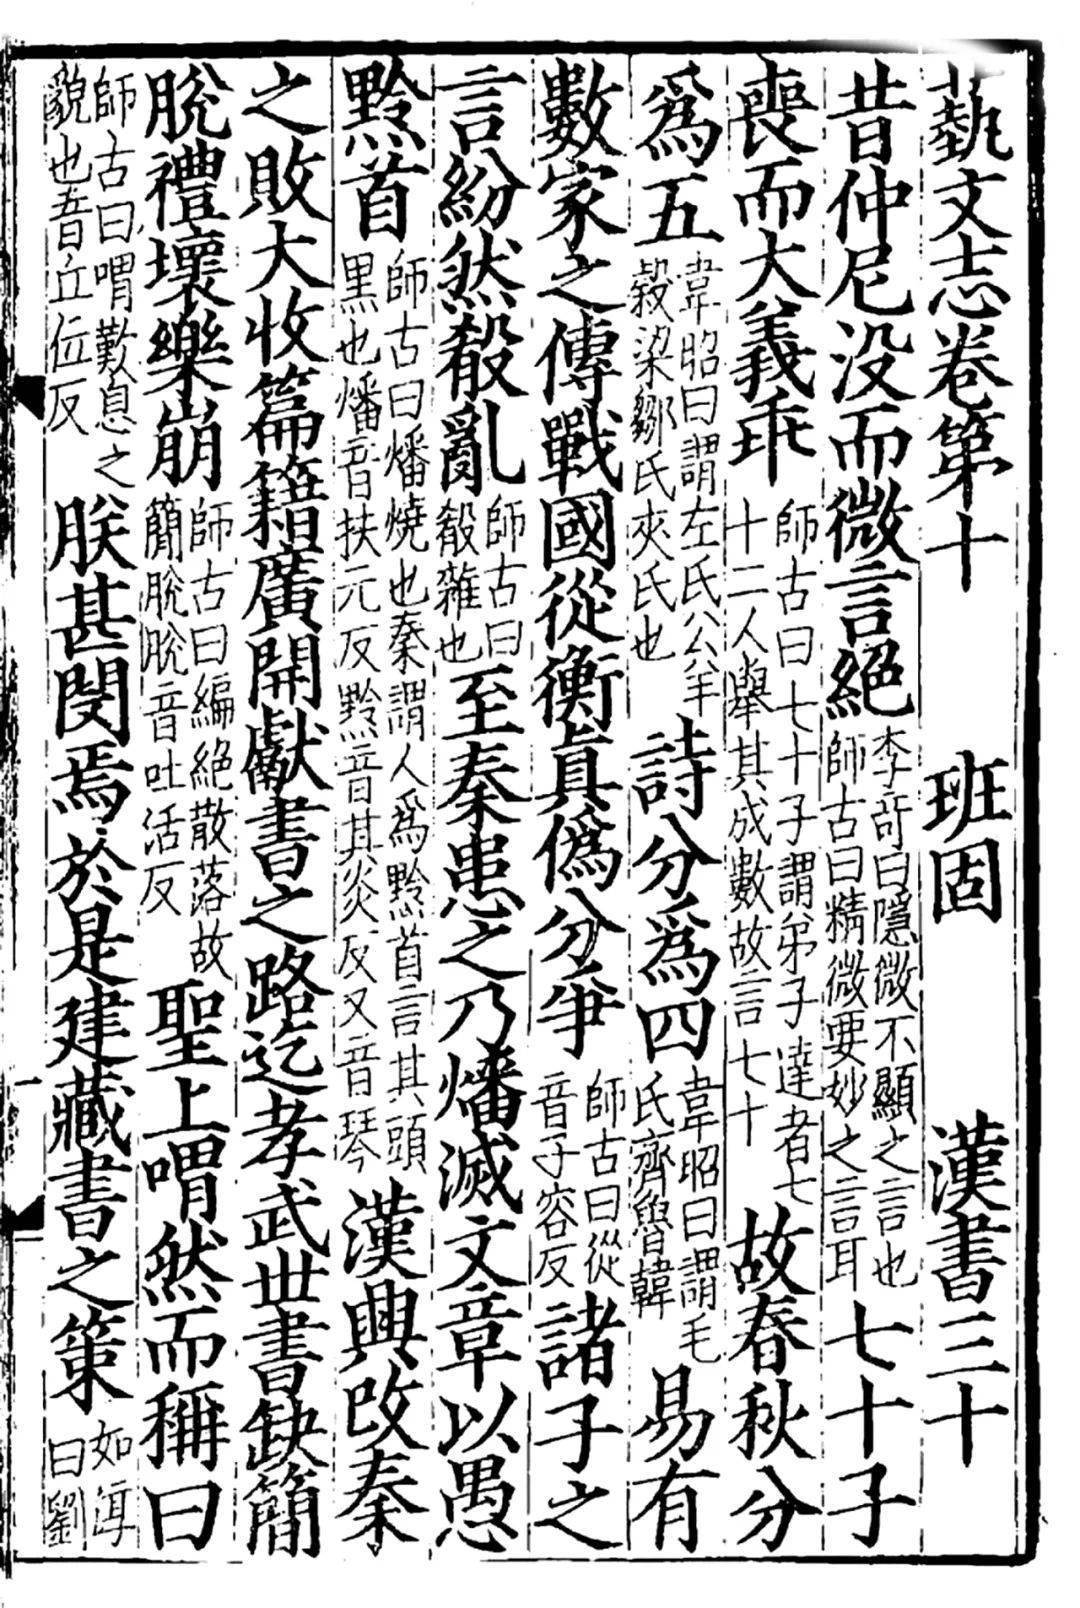 藝文志卷第十　班固　漢書三十
昔仲尼没而微言絕李竒曰隱微不顯之言也師古曰精微要妙之言耳七十子
喪而大義乖師古曰七十子謂弟子達者七十二人舉其成數故言七十故春秋分
爲五韋昭曰謂左氏公羊穀梁鄒氏夾氏也詩分爲四韋昭曰謂毛氏齊魯韓易有
數家之傳戰國從衡真僞分爭師古曰從音子容反諸子之
言紛然殽亂師古曰殽雜也至秦患之乃燔滅文章以愚
黔首師古曰燔燒也秦謂人爲黔首言其頭黒也燔音扶元反黔音其炎反又音琴漢興改秦
之敗大收篇籍廣開獻書之路迄孝武丗書缺簡
脫禮壞樂崩師古曰編絕散落故簡脫脫音吐活反聖上喟然而稱曰
師古曰喟歎息之皃也音丘位反朕甚閔焉於是建藏書之策如淳曰劉